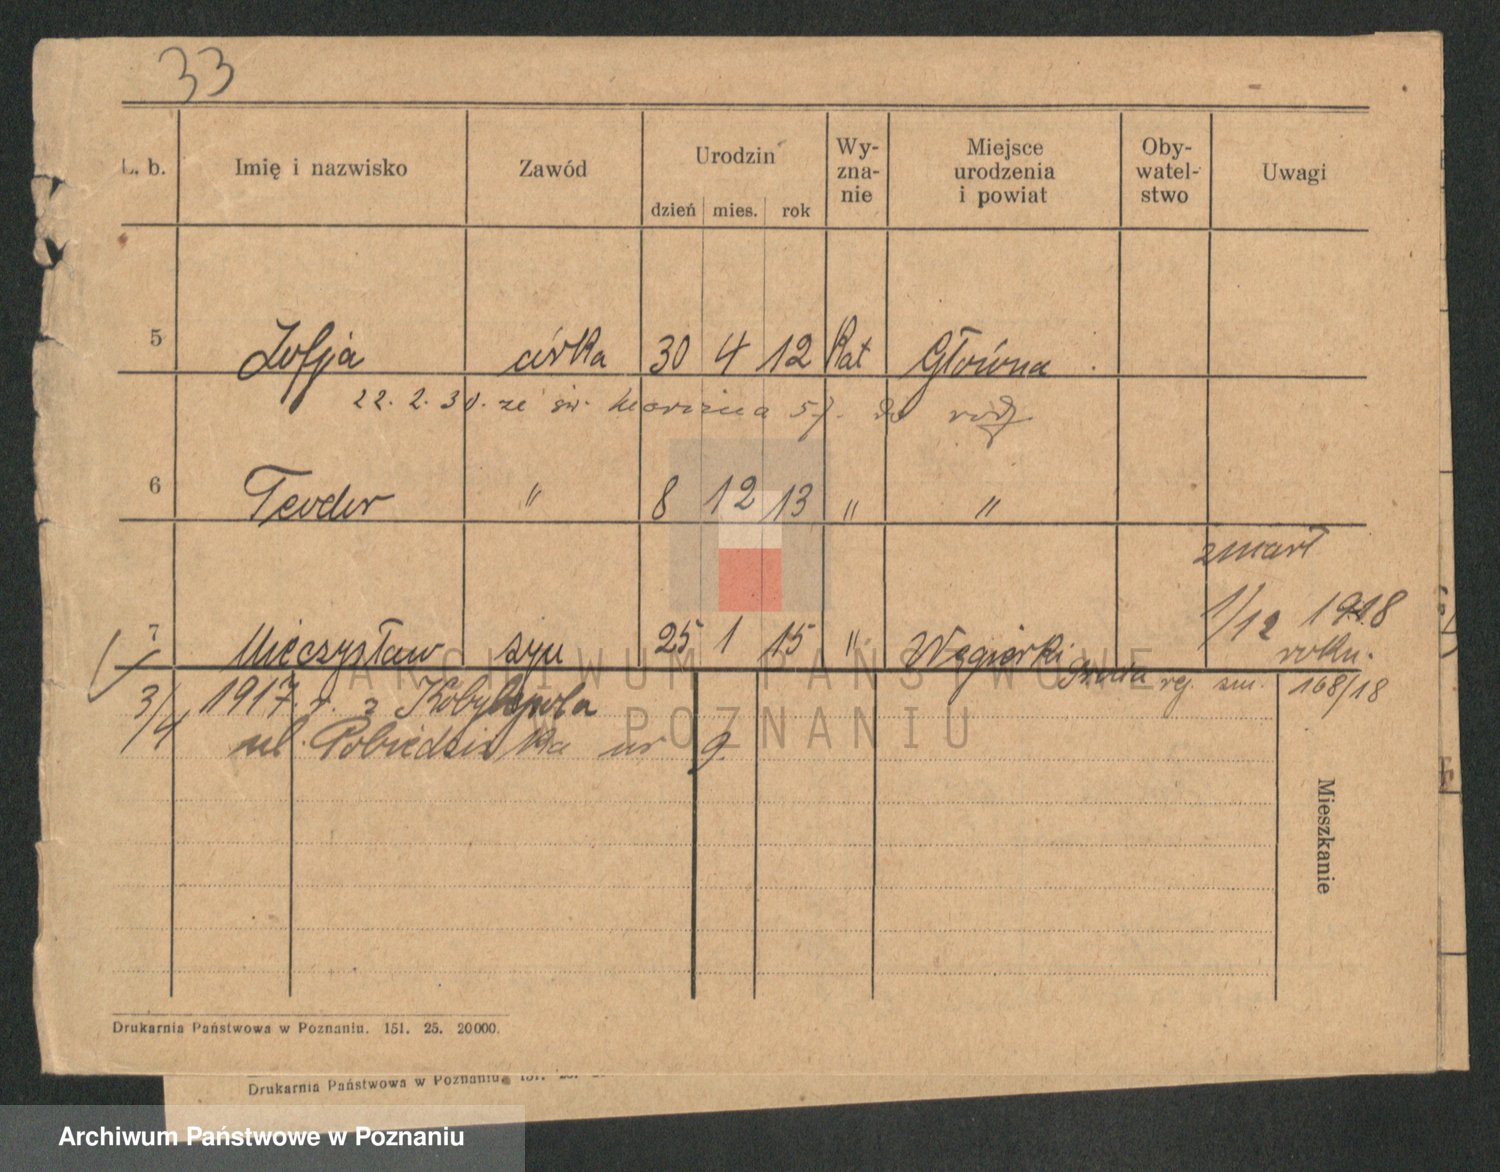 33
L. b. Imię i nazwisko Zawód Urodzin dzień mies. rok Wy-zna-nie Miejsce urodzenia i powiat Oby-watel-stwo Uwagi
5 Zofja córka 30 4 12 Kat Główna
22. 2. 30. ze św. Marcina 57. do
6 Teodor " 8 12 13 " "
zmarł
1/12 1918
roku.
7 Mieczysław syn 25 1 15 " Węgierki
rej. zm. 168/18
3/4 1917. r. z Kobylepola
ul. Pobiedziska nr 9.
Mieszkanie
ARCHIWUM PAŃSTWOWE
W POZNANIU
Drukarnia Państwowa w Poznaniu. 151. 25. 20000.
Drukarnia Państwowa w Poznaniu.
Archiwum Państwowe w Poznaniu